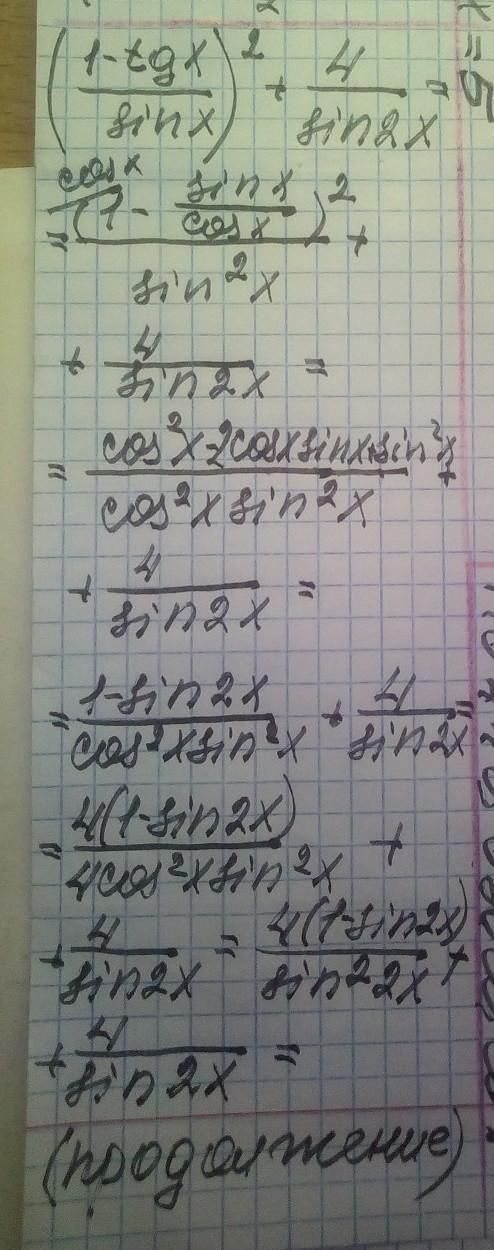 ((1-tgx)/(sinx))² + 4/(sin2x) =
= cosx/(1 - (sinx)/(cosx))²/(sin²x) +
+ 4/(sin2x) =
= (cos²x-2cosxsinx+sin²x)/(cos²x sin²x) +
+ 4/(sin2x) =
= (1-sin2x)/(cos²x sin²x) + 4/(sin2x) =
= (4(1-sin2x))/(4cos²x sin²x) +
+ 4/(sin2x) = (4(1-sin2x))/(sin²2x) +
+ 4/(sin2x) =
(продолжение)